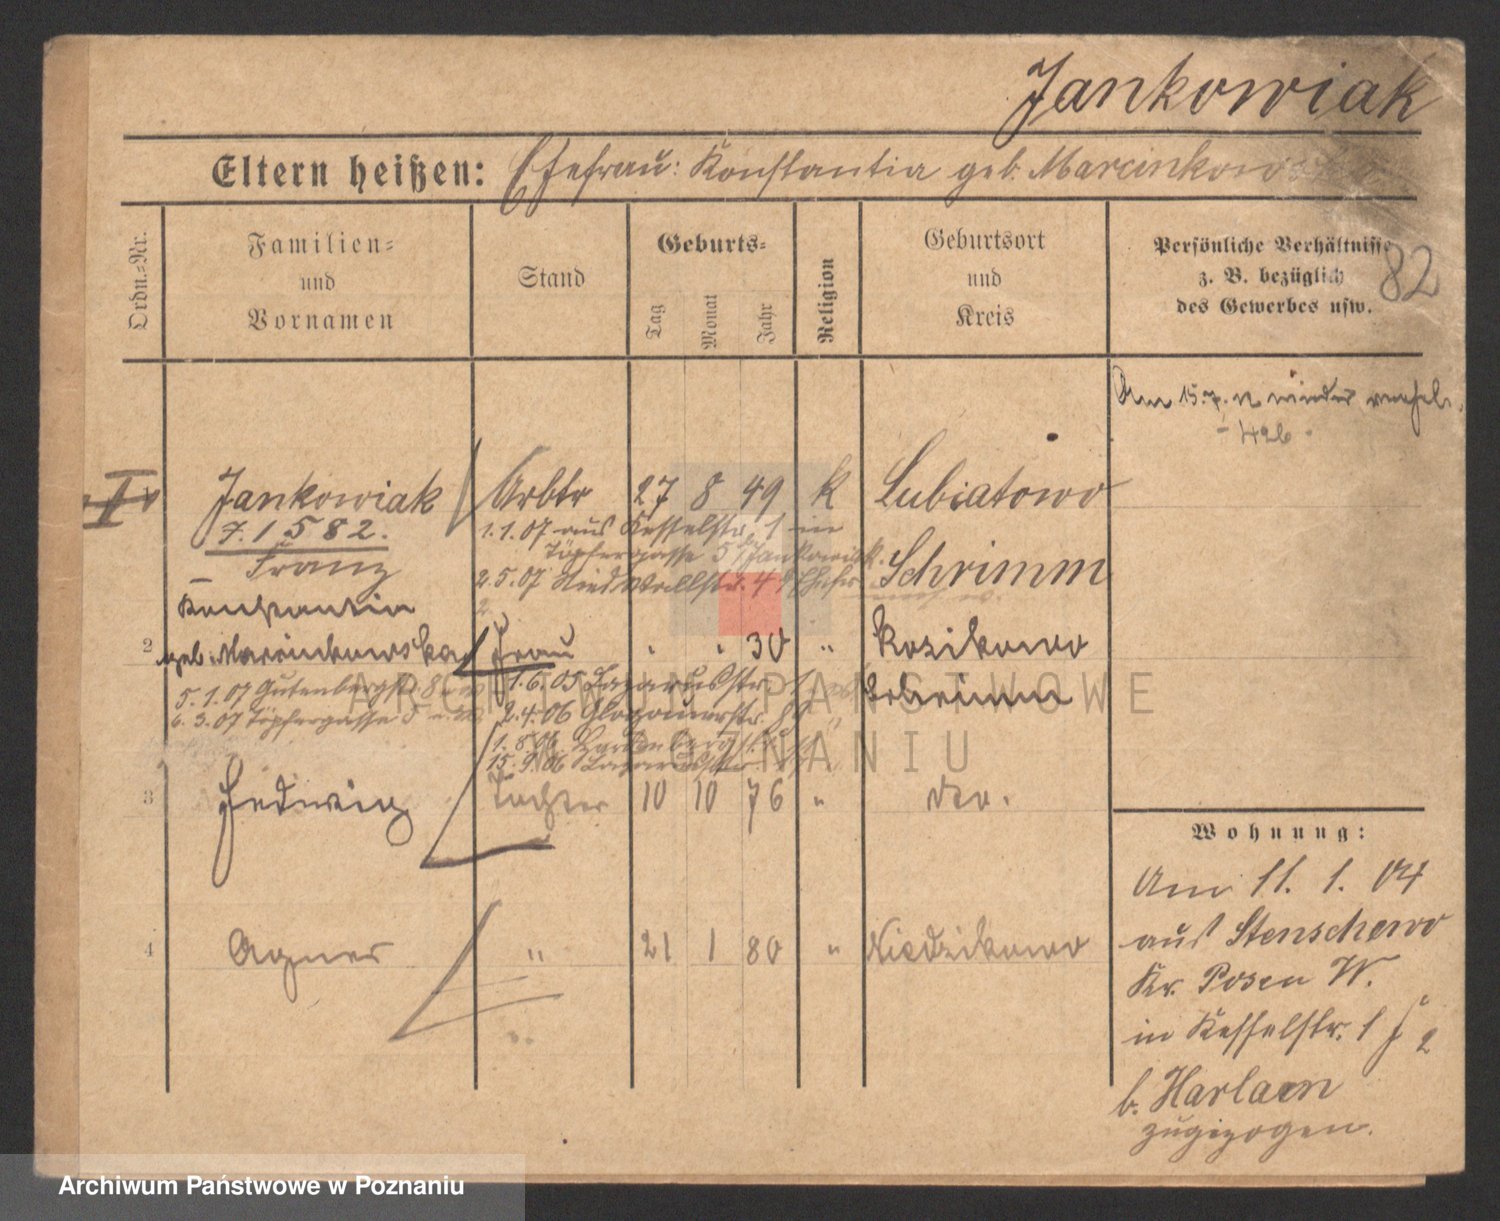 Jankowiak
Eltern heißen: Ehefrau: Konstantia geb. Marcinkowska
Ordn.=Nr.
Familien=
und
Vornamen
Stand
Geburts=
Tag
Monat
Jahr
Religion
Geburtsort
und
Kreis
Persönliche Verhältnisse
z. B. bezüglich
des Gewerbes usw.
82
Am 15.7.
Jankowiak Arbtr 27 8 49 K Lubiatowo
7.1582.
Franz
Schrimm
1.1.07 aus Kesselstr. 1 in
Töpfergasse 5 b/Jankowiak.
2.5.07 Niedwallstr. 4
Konstantia
2 geb. Marcinkowska Frau " " 30 " Kozikowo
Schrimm
5.1.07 Gutenbergstr. 8
6.3.07 Töpfergasse 5
1.6.05 Lazarusstr.
2.4.06 Glogauerstr.
15.9.06 Lazarusstr.
3 Hedwig Tochter 10 10 76 " dto.
4 Agnes " 21 1 80 " Niedzikowo
Wohnung:
Am 11. 1. 04
aus Stenschewo
Kr. Posen W.
in Kesselstr. 1
b. Harlaen
zugezogen.
ARCHIWUM PAŃSTWOWE
W POZNANIU
Archiwum Państwowe w Poznaniu